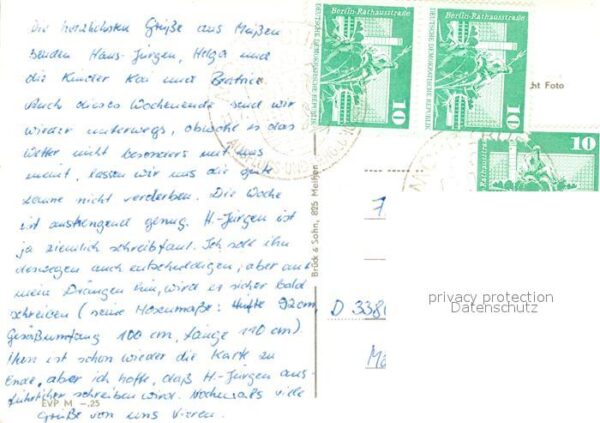 Die herzlichsten Grüße aus Meißen
senden Hans-Jürgen, Helga und
die Kinder Kai und Beatrice.
Auch dieses Wochenende sind wir
wieder unterwegs, obwohl es das
Wetter nicht besonders mit uns
meint, lassen wir uns die gute
Laune nicht verderben. Die Woche
ist anstrengend genug. H-Jürgen ist
ja ziemlich schreibfaul. Ich soll ihn
deswegen auch entschuldigen, aber auf
mein Drängen hin, wird er sicher bald
schreiben (seine Hosenmaße: Hüfte 92cm,
Gesäßumfang 100 cm, Länge 110 cm)
Nun ist schon wieder die Karte zu
Ende, aber ich hoffe, daß H-Jürgen aus-
führlicher schreiben wird. Nochmals viele
Grüße von uns Vieren.
EVP M -.25
Brück & Sohn, 825 Meißen
Berlin-Rathausstraße
DEUTSCHE DEMOKRATISCHE REPUBLIK
10
Berlin-Rathausstraße
DEUTSCHE DEMOKRATISCHE REPUBLIK
10
10
Rathausstraße
cht Foto
D 338
privacy protection
Datenschutz